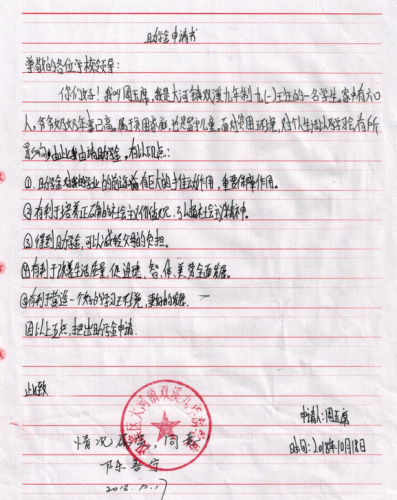 助学金申请书
尊敬的各位学校领导:
你们好!我叫周玉席,我是大河镇双溪九年制九(一)班的一名学生。家中有六口
人,爷爷奶奶年事已高。属于贫困家庭,也是留守儿童。面对贫困环境,对个人生活以及学校会有所
影响,由此我申请助学金。有以下几点:
①.助学金对我的学业的前途有巨大的推动作用,重要保障作用。
②有利于培养正确的社会主义价值观,弘扬社会主义精神。
③得到助学金,可以减轻父母的负担。
④有利于改善生活质量,促进德、智、体、美、劳全面发展。
⑤有利于营造一个好的学习环境,更好的发展。
因以上五点,提出助学金申请.
此致
申请人:周玉席
时间:2018年10月18日
情况属实,同意
大河镇双溪
2018.10.17